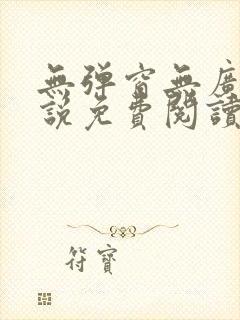 無彈窗無廣
說免費閱讀
符寶